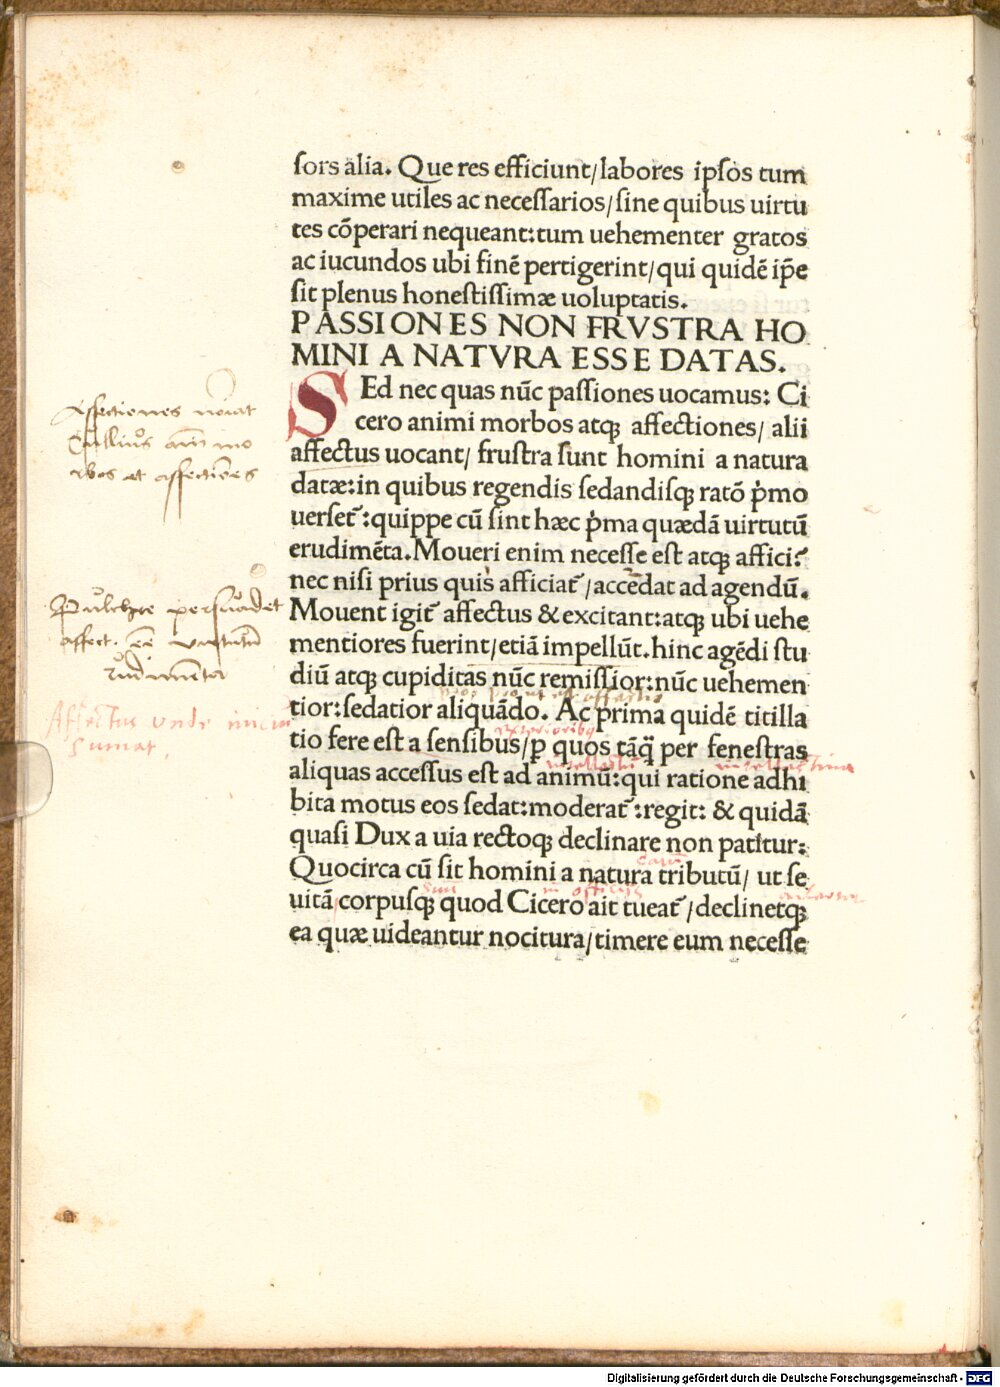 ſors alia. Que res efficiunt/labores ipſos tum
maxime utiles ac neceſſarios/ſine quibus uirtu
tes cōperari nequeant:tum uehementer gratos
ac iucundos ubi finē pertigerint/qui quidē ip̄e
ſit plenus honeſtiſſimæ uoluptatis.
PASSIONES NON FRVSTRA HO
MINI A NATVRA ESSE DATAS.
SEd nec quas nūc paſſiones uocamus: Ci
cero animi morbos atqꝫ affectiones/ alii
affectus uocant/ fruſtra ſunt homini a natura
datæ:in quibus regendis ſedandiſqꝫ ratō p̍mo
uerſet᷑:quippe cū ſint hæc p̍ma quædā uirtutū
erudimēta.Moueri enim neceſſe eſt atqꝫ affici:
nec niſi prius quis afficiat᷑/accedat ad agendū.
Mouent igit᷑ affectus &excitant:atqꝫ ubi uehe
mentiores fuerint/etiā impellūt.hinc agēdi ſtu
diū atqꝫ cupiditas nūc remiſſior:nūc uehemen
tior:ſedatior aliquādo. Ac prima quidē titilla
tio fere eſt a ſenſibus/ꝑ quos tāꝙ̄ per feneſtras
aliquas acceſſus eſt ad animū:qui ratione adhi
bita motus eos ſedat:moderat᷑:regit: & quidā
quaſi Dux a uia rectoqꝫ declinare non patitur:
Quocirca cū ſit homini a natura tributū/ ut ſe
uitā corpuſqꝫ quod Cicero ait tueat᷑/declinetqꝫ
ea quæ uideantur nocitura/timere eum neceſſe
Affectiones
morbos et affectiones
Pulchre persuadet
affect. eē virtutū
rudimenta
Affectus unde iniciū
sumat.
exterioribꝰ
Digitalisierung gefördert durch die Deutsche Forschungsgemeinschaft - DFG